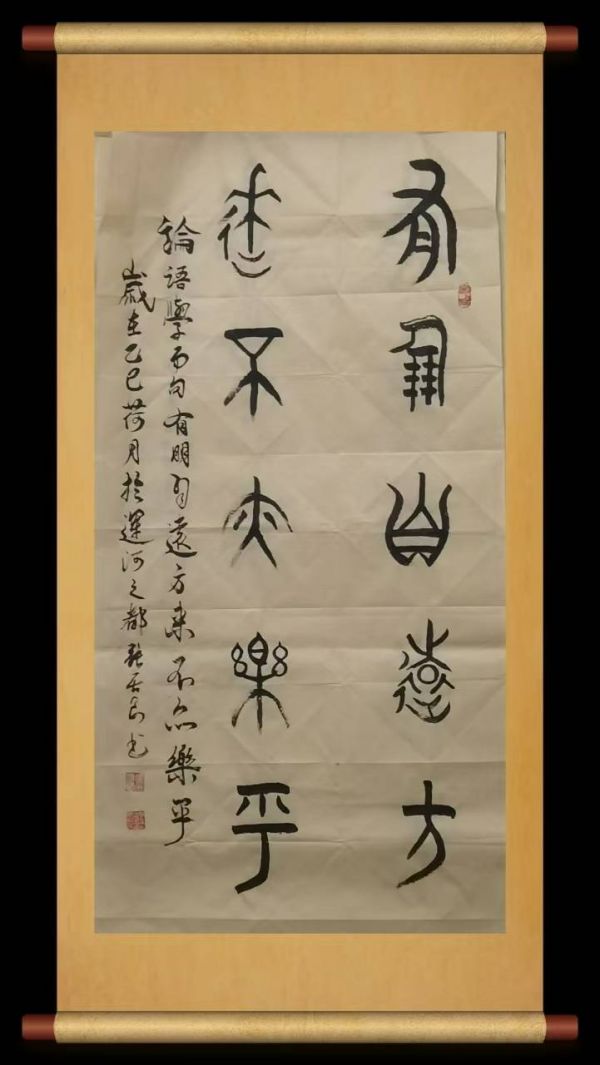 有朋自遠方
來不亦樂乎
論語學而句有朋自遠方来不亦樂乎
歲在乙巳荷月於運河之都張良书